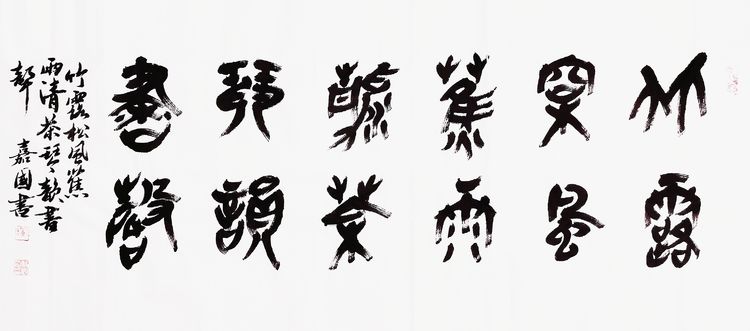 竹露
松風
蕉雨
清茶
琴韻
書聲
竹露松風蕉
雨清茶琴韻書
聲 嘉國書